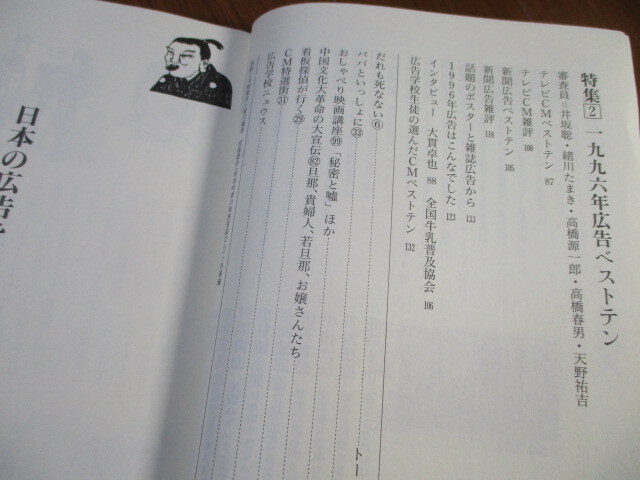 特集2 一九九六年広告ベストテン
審査員＝井坂聡・緒川たまき・高橋源一郎・高橋春男・天野祐吉
テレビCMベストテン 87
テレビCM雑評 100
新聞広告ベストテン 105
新聞広告雑評 118
話題のポスターと雑誌広告から 133
1996年広告はこんなでした 123
インタビュー 大貫卓也 88 全国牛乳普及協会 106
広告学校生徒の選んだCMベストテン 132
だれも死なない⑥
パパといっしょに㉝
おしゃべり映画講座�99 「秘密と嘘」ほか
中国文化大革命の大宣伝�82 旦那、貴婦人、若旦那、お嬢さんたち
看板探偵が行く㉙
CM特選街㉛
広告学校ニュウス
トー
日本の広告